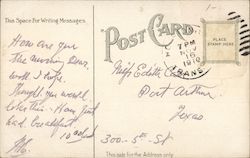 This Space For Writing Messages.
POST CARD
7 PM
1910
TRANS
PLACE
STAMP HERE
How are you
This morning Dear.
well I hope.
Thought you would
like this - Have just
had breakfast
10
Miss Edith
Port Arthur
Texas
300 - 5th - St
This side for the Address only